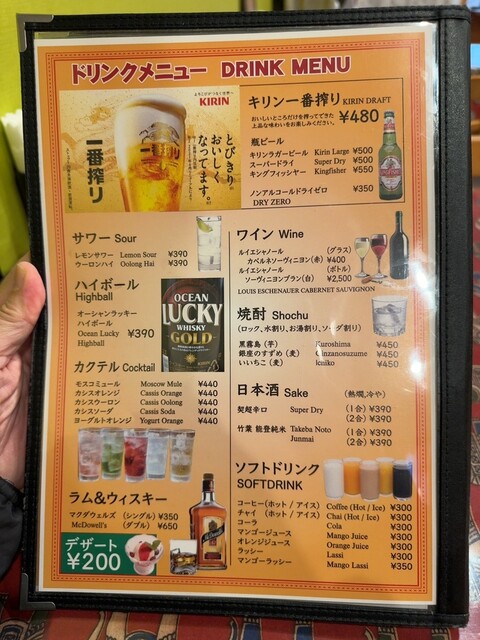 ドリンクメニュー DRINK MENU
よろこびがつなぐ世界へ
KIRIN
とびきり
おいしく
なってます。
一番搾り
キリン一番搾り KIRIN DRAFT
おいしいところだけを搾ってできた
上品な味わいをお楽しみください。
¥480
瓶ビール
キリンラガービール Kirin Large ¥500
スーパードライ Super Dry ¥500
キングフィッシャー Kingfisher ¥550
ノンアルコールドライゼロ ¥350
DRY ZERO
サワー Sour
レモンサワー Lemon Sour ¥390
ウーロンハイ Oolong Hai ¥390
ハイボール
Highball
オーシャンラッキー
ハイボール
Ocean Lucky ¥390
Highball
OCEAN
LUCKY
WHISKY
GOLD
カクテル Cocktail
モスコミュール Moscow Mule ¥440
カシスオレンジ Cassis Orange ¥440
カシスウーロン Cassis Oolong ¥440
カシスソーダ Cassis Soda ¥440
ヨーグルトオレンジ Yogurt Orange ¥440
ラム&ウィスキー
マクダウェルズ (シングル) ¥350
McDowell's (ダブル) ¥650
デザート
¥200
ワイン Wine
ルイエシャノール (グラス)
カベルネソーヴィニヨン(赤) ¥400
ルイエシャノール (ボトル)
ソーヴィニヨンブラン(白) ¥2,500
LOUIS ESCHENAUER CABERNET SAUVIGNON
焼酎 Shochu
(ロック、水割り、お湯割り、ソーダ割り)
黒霧島 (芋) Kuroshima ¥450
銀座のすずめ (麦) Ginzanosuzume ¥450
いいちこ (麦) Icuiko ¥450
日本酒 Sake (熱燗,冷や)
契超辛口 Super Dry (1合) ¥390
(2合) ¥390
竹葉 能登純米 Takeba Noto (1合) ¥390
Junmai (2合) ¥390
ソフトドリンク
SOFTDRINK
コーヒー(ホット / アイス) Coffee (Hot / Ice) ¥300
チャイ (ホット / アイス) Chai (Hot / Ice) ¥300
コーラ Cola ¥300
マンゴージュース Mango Juice ¥300
オレンジジュース Orange Juice ¥300
ラッシー Lassi ¥300
マンゴーラッシー Mango Lassi ¥350